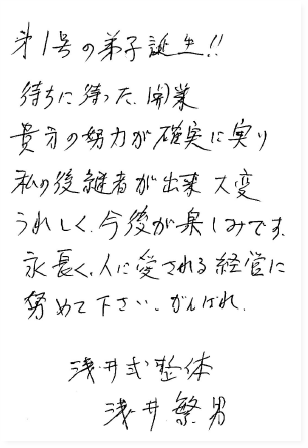 第1号の弟子誕生!!
待ちに待った、開業
貴方の努力が確実に実り
私の後継者が出来 大変
うれしく、今後が楽しみです。
永長く、人に愛される経営に
努めて下さい。がんばれ。
浅井式整体
浅井繁男